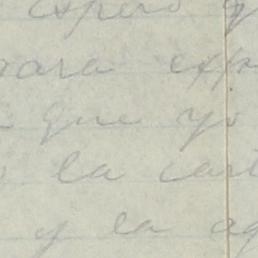 espero
para exp
que yo
la cart
y la ag